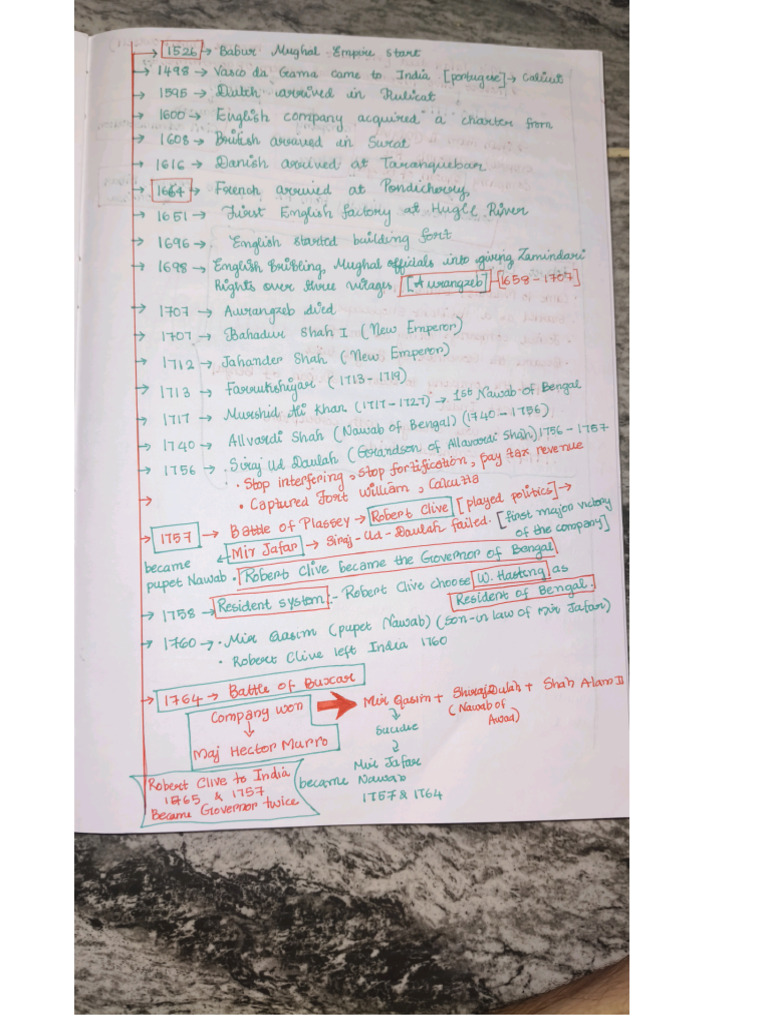 → 1526 → Babur Mughal Empire start
→ 1498 → Vasco da Gama came to India [portugese] → Calicut
→ 1595 → Dutch arrived in Pulicat
→ 1600 → English company acquired a charter from
→ 1608 → British arrived in Surat
→ 1616 → Danish arrived at Taranquebar
→ 1664 → French arrived at Pondicherry,
→ 1651 → First English factory at Hugli River
→ 1696 → English started building fort
→ 1698 → English Bribling, Mughal officials into giving Zamindari
Rights over three villages. [Aurangzeb] - [1658 - 1707]
→ 1707 → Aurangzeb died
→ 1707 → Bahadur Shah I (New Emperor)
→ 1712 → Jahander Shah (New Emperor)
→ 1713 → Farrukhsiyar (1713 - 1719)
→ 1717 → Murshid Ali Khan (1717 - 1727) → 1st Nawab of Bengal
→ 1740 → Allvardi Shah (Nawab of Bengal) (1740 - 1756)
→ 1756 → Siraj Ud Daulah (Grandson of Allavardi Shah) 1756 - 1757
• Stop interfering, stop fortification, pay tax revenue
→ • Captured Fort William, Calcutta
→ 1757 → Battle of Plassey → Robert Clive [played politics] →
Mir Jafar → Siraj-Ud-Daulah failed. [first major victory
of the company]
became
pupet Nawab • Robert Clive became the Governor of Bengal
→ 1758 → Resident system :- Robert Clive choose W. Hasting as
Resident of Bengal.
→ 1760 → • Mir Qasim (pupet Nawab) (son-in law of Mir Jafar)
• Robert Clive left India 1760
→ 1764 → Battle of Buxar
Company won
↓
Maj Hector Munro
Mir Qasim + Shiraj Dulah + Shah Alam II
(Nawab of
Awad)
↓
Sucide
↓
Mir Jafar
became Nawab
1757 & 1764
Robert Clive to India
1765 & 1757
Became Governor twice